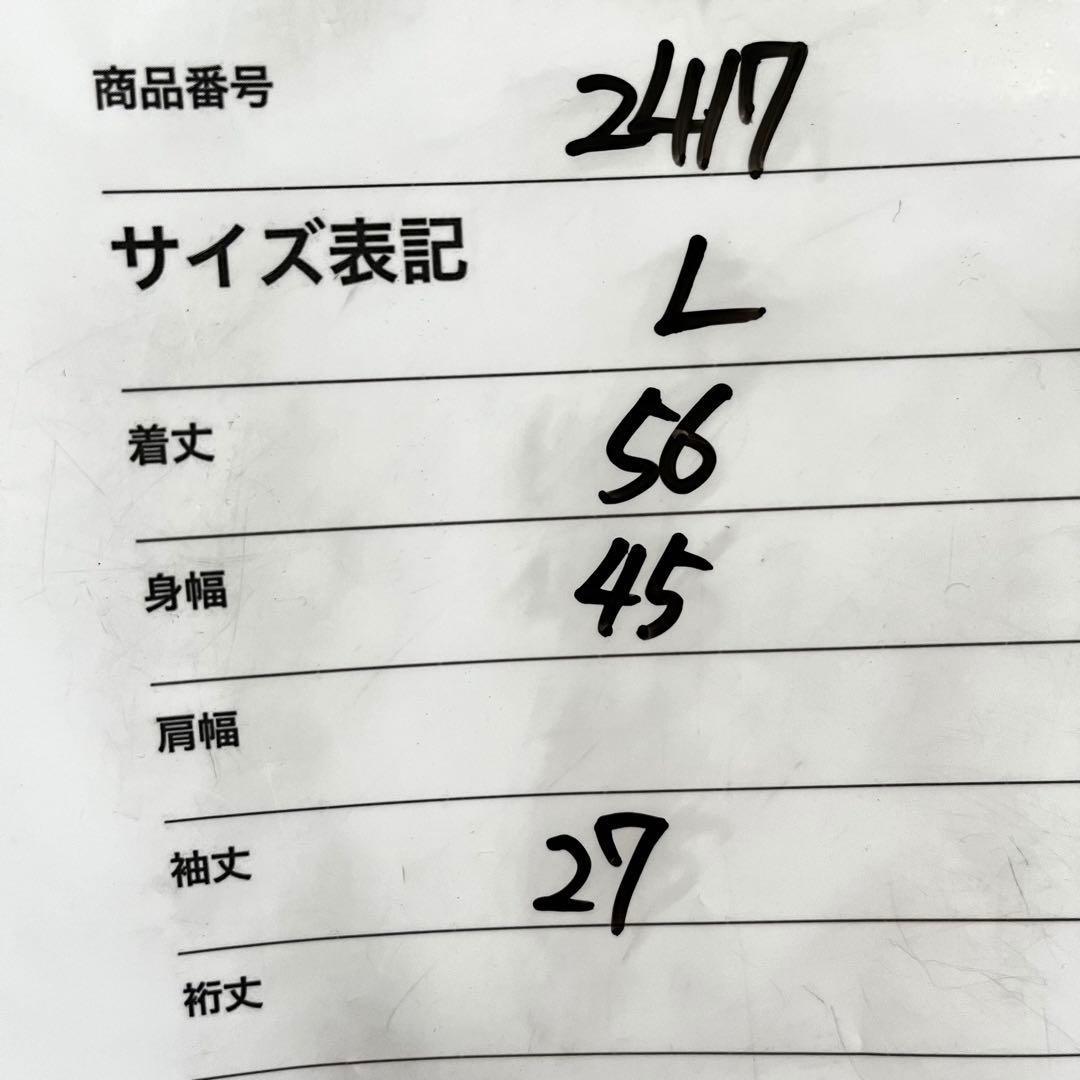 商品番号 2417
サイズ表記 L
着丈 56
身幅 45
肩幅
袖丈 27
裄丈